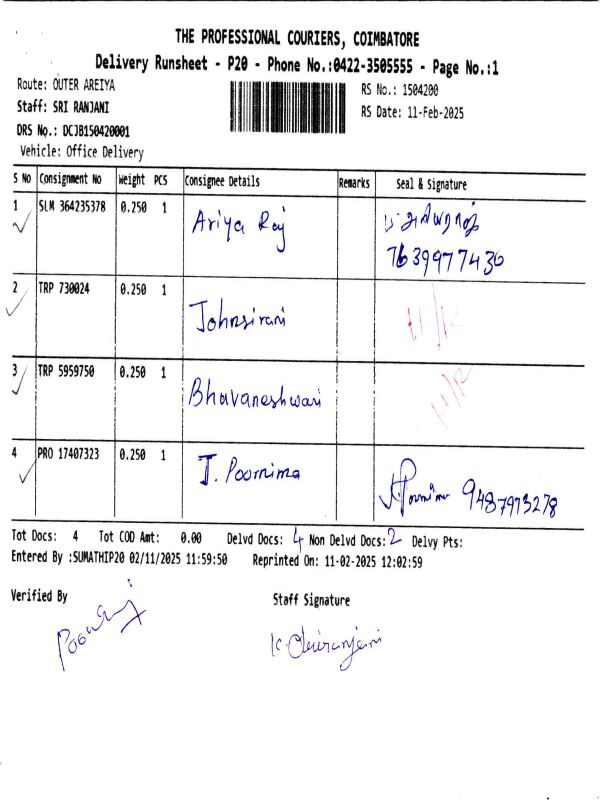 THE PROFESSIONAL COURIERS, COIMBATORE
Delivery Runsheet - P20 - Phone No.:0422-3505555 - Page No.:1
Route: OUTER AREIYA
RS No.: 1504200
Staff: SRI RANJANI
RS Date: 11-Feb-2025
DRS No.: DCJB150420001
Vehicle: Office Delivery
S No Consignment No Weight PCS Consignee Details Remarks Seal & Signature
1 SLM 364235378 0.250 1 Ariya Raj
7639977430
2 TRP 730024 0.250 1 Johnsirani
3 TRP 5959750 0.250 1 Bhavaneshwari
4 PRO 17407323 0.250 1 J. Poornima 9487973278
Tot Docs: 4 Tot COD Amt: 0.00 Delvd Docs: 4 Non Delvd Docs: 2 Delvy Pts:
Entered By :SUMATHIP20 02/11/2025 11:59:50 Reprinted On: 11-02-2025 12:02:59
Verified By Staff Signature